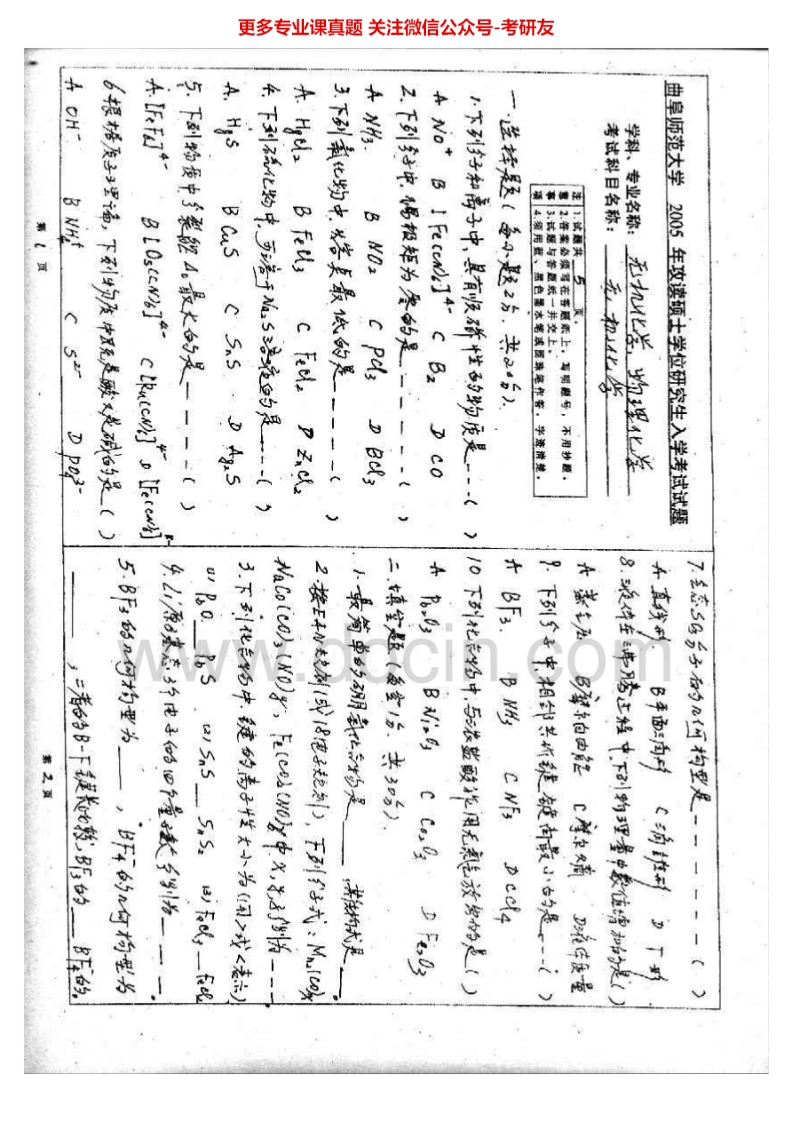 更多专业课真题 关注微信公众号-考研友
曲阜师范大学 2005 年攻读硕士学位研究生入学考试试题
学科、专业名称：无机化学、物理化学
考试科目名称：无机化学
注意事项
1.试题共 5 页。
2.答案必须写在答题纸上，写明题号，不用抄题。
3.试题与答题纸一并交上。
4.须用蓝、黑色墨水笔或圆珠笔作答，字迹清楚。
一.选择题(每小题2分，共20分).
1.下列分子和离子中，具有顺磁性的物质是---( )
A NO⁺ B [Fe(CN)6]⁴⁻ C B2 D CO
2.下列分子中，偶极矩为零的是------( )
A NH3. B NO2 C PCl3 D BCl3
3.下列氯化物中，熔点最低的是-----( )
A HgCl2 B FeCl3 C FeCl2 D ZnCl2
4.下列硫化物中，可溶于Na2S溶液的是---( )
A. HgS B CuS C SnS D Ag2S
5.下列物质中分裂能Δ0最大的是----( )
A.[FeF6]⁴⁻ B [Os(CN)6]⁴⁻ C [Ru(CN)6]⁴⁻ D [Fe(CN)6]⁴⁻
6根据质子理论，下列物质中既是酸又是碱的是( )
A OH⁻ B NH4⁺ C S²⁻ D PO4³⁻
第 1 页
7.气态SO3分子的几何构型是-------( )
A 直线形 B 平面三角形 C 三角锥形 D T形
8.液体在沸腾过程中，下列物理量中数值增加的是( )
A 蒸气压 B 摩尔自由能 C 摩尔熵 D 液体质量
9.下列分子中，相邻共价键键角最小的是---( )
A BF3. B NH3 C NF3 D CCl4
10下列化合物中，与浓盐酸作用无氯气放出的是( )
A Pb2O3 B Ni2O3 C Co2O3 D Fe2O3
二.填空题(每空1分，共30分).
1.最简单的硼氢化合物是___，其结构式是___.
2.按EAN规则(或18电子规则)，下列分子式：Mn2(CO)x
NaCo(CO)x(NO)y，Fe(CO)x(NO)y中x,y是分别为---
3.下列化合物中键的离子性大小为(用>或<表示)
(1) PbO__PbS (2) SnS__SnS2 (3) FeCl3__FeCl2
4.Li原子基态3个电子的四个量子数分别为___.
5.BF3的几何构型为___，BF4⁻的几何构型为
___，二者的B-F键长比较，BF3的__BF4⁻的.
第 2 页
www.docin.com